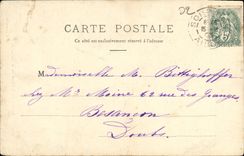 CARTE POSTALE
Ce côté est exclusivement réservé à l'adresse
Mademoiselle M. Bettighoffer
chez Mr Moine 62 rue des Granges
Besançon
Doubs